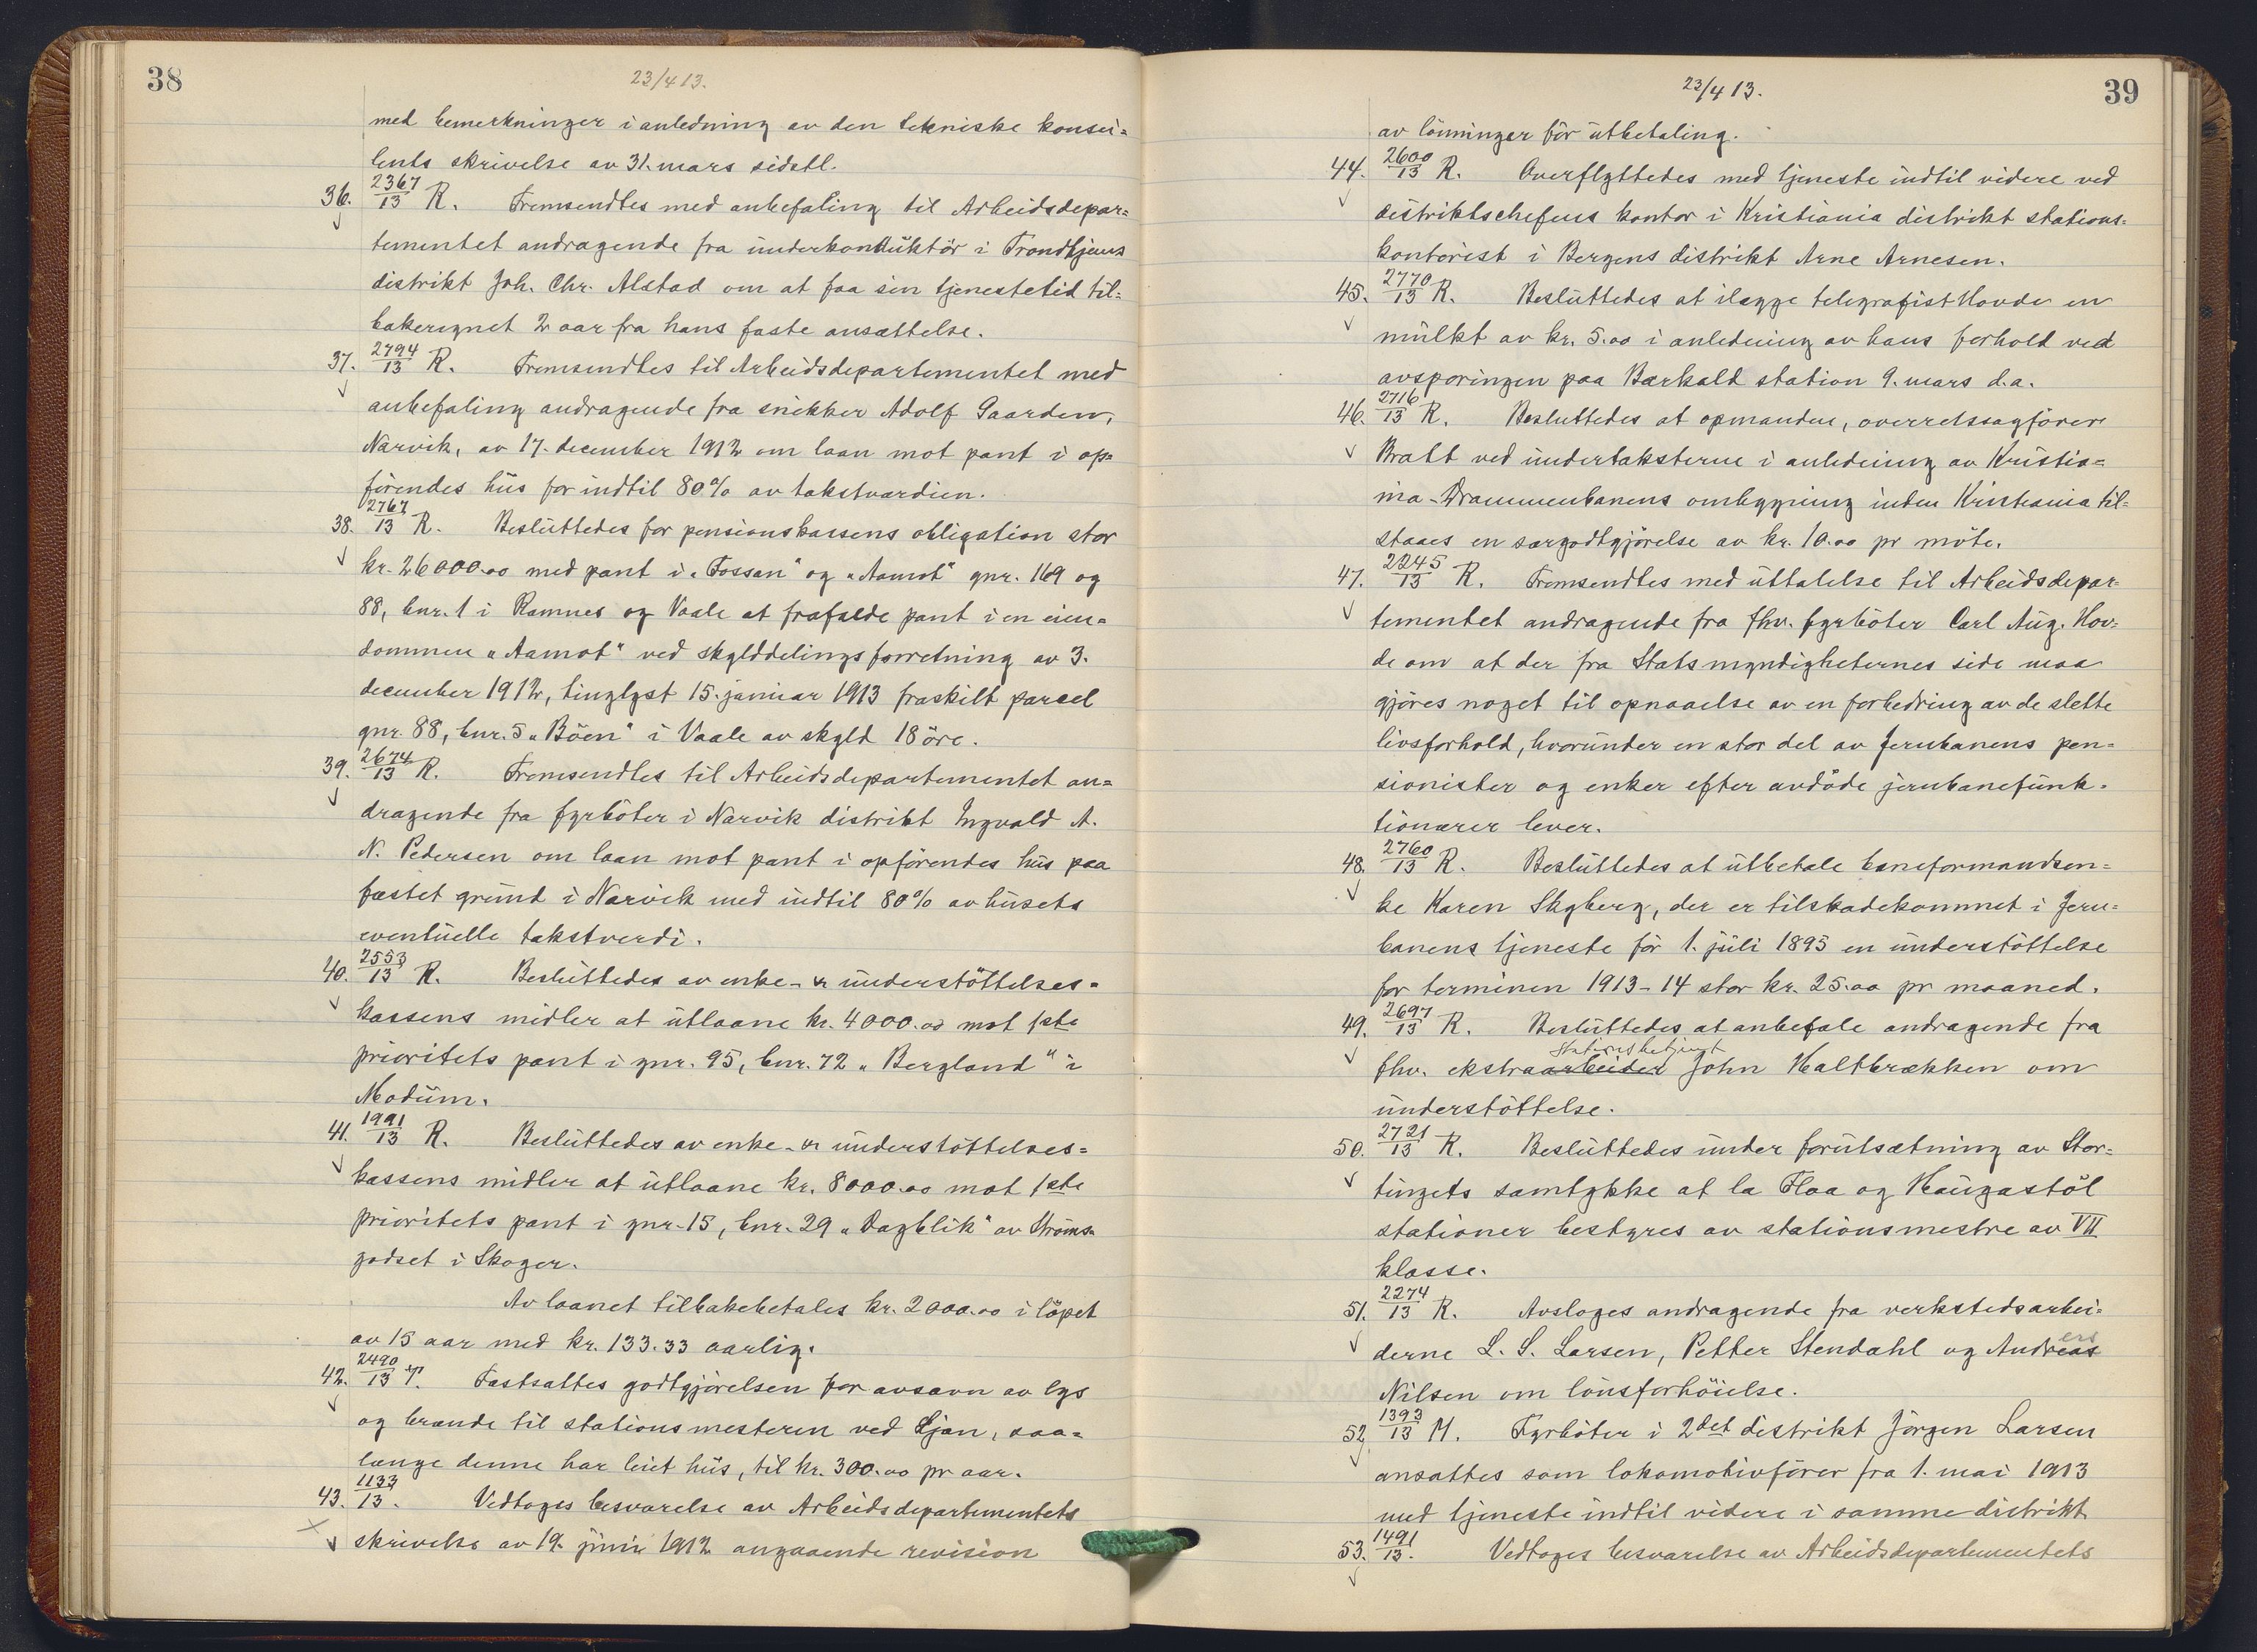 38
23/4 13.
med bemerkninger i anledning av den tekniske konsu=
lents skrivelse av 31. mars sidstl.
36. 2367/13 R. Fremsendtes med anbefaling til Arbeidsdepar=
tementet andragende fra underkonduktör i Trondhjems
distrikt Joh. Chr. Alstad om at faa sin tjenestetid til=
bakeregnet 2 aar fra hans faste ansættelse.
37. 2794/13 R. Fremsendtes til Arbeidsdepartementet med
anbefaling andragende fra snekker Adolf Gaarden,
Narvik, av 17. december 1912 om laan mot pant i op=
förendes hus for indtil 80% av takstværdien.
38. 2767/13 R. Besluttedes for pensionskassens obligation stor
kr. 26000.00 med pant i „Fossan" og „Aamot" gnr. 169 og
88, bnr. 1 i Ramnes og Vaale at frafalde pant i en eien=
dommen „Aamot" ved skylddelingsforretning av 3.
december 1912, tinglyst 15. januar 1913 fraskilt parcel
gnr. 88, bnr. 5 „Böen" i Vaale av skyld 18 öre.
39. 2674/13 R. Fremsendtes til Arbeidsdepartementet an=
dragende fra fyrböter i Narvik distrikt Ingvald A.
N. Pedersen om laan mot pant i opförendes hus paa
fæstet grund i Narvik med indtil 80% av husets
eventuelle takstverdi.
40. 2553/13 R. Besluttedes av enke- & understöttelses=
kassens midler at utlaane kr. 4000.00 mot 1ste
prioritets pant i gnr. 95, bnr. 72 „Bergland" i
Modum.
41. 1991/13 R. Besluttedes av enke- & understöttelses=
kassens midler at utlaane kr. 8000.00 mot 1ste
prioritets pant i gnr. 15, bnr. 29 „Dagblik" av Ströms=
godset i Skoger.
Av laanet tilbakebetales kr. 2000.00 i löpet
av 15 aar med kr. 133.33 aarlig.
42. 2490/13 T. Fastsattes godtgjörelsen for avsavn av lys
og brænde til stationsmesteren ved Ljan, saa=
længe denne har leiet hus, til kr. 300.00 pr aar.
43. 1133/13. Vedtoges besvarelse av Arbeidsdepartementets
skrivelse av 19. juni 1912 angaaende revision
39
23/4 13.
av lönninger för utbetaling.
44. 2600/13 R. Overflyttedes med tjeneste indtil videre ved
distriktschefens kontor i Kristiania distrikt stations=
kontorist i Bergens distrikt Arne Arnesen.
45. 2770/13 R. Besluttedes at ilægge telegrafist Hovde en
mulkt av kr. 5.00 i anledning av hans forhold ved
avsporingen paa Barkald station 9. mars d.a.
46. 2716/13 R. Besluttedes at opmanden, overretssagförer
Bratt ved undertaksterne i anledning av Kristia=
nia-Drammenbanens ombygning inden Kristiania til=
staaes en særgodtgjörelse av kr. 10.00 pr möte.
47. 2245/13 R. Fremsendtes med uttalelse til Arbeidsdepar=
tementet andragende fra fhv. fyrböter Carl Aug. Hov=
de om at der fra Statsmyndigheternes side maa
gjöres noget til opnaaelse av en forbedring av de slette
livsforhold, hvorunder en stor del av Jernbanens pen=
sionister og enker efter avdöde jernbanefunk=
tionærer lever.
48. 2760/13 R. Besluttedes at utbetale baneformandsen=
ke Karen Skyberg, der er tilskadekommet i Jern=
banens tjeneste för 1. juli 1895 en understöttelse
for terminen 1913-14 stor kr. 25.00 pr maaned.
49. 2697/13 R. Besluttedes at anbefale andragende fra
stationsbetjent
fhv. ekstraarbeider John Haltbrækken om
understöttelse.
50. 2721/13 R. Besluttedes under forutsætning av Stor=
tingets samtykke at la Flaa og Haugastöl
stationer bestyres av stationsmestre av VII
klasse.
51. 2274/13 R. Avsloges andragende fra verkstedsarbei=
derne L. S. Larsen, Petter Stendahl og Andreas
ers
Nilsen om lönsforhöielse.
52. 1393/13 M. Fyrböter i 2det distrikt Jörgen Larsen
ansattes som lokomotivförer fra 1. mai 1913
med tjeneste indtil videre i samme distrikt.
53. 1491/13. Vedtoges besvarelse av Arbeidsdepartementets